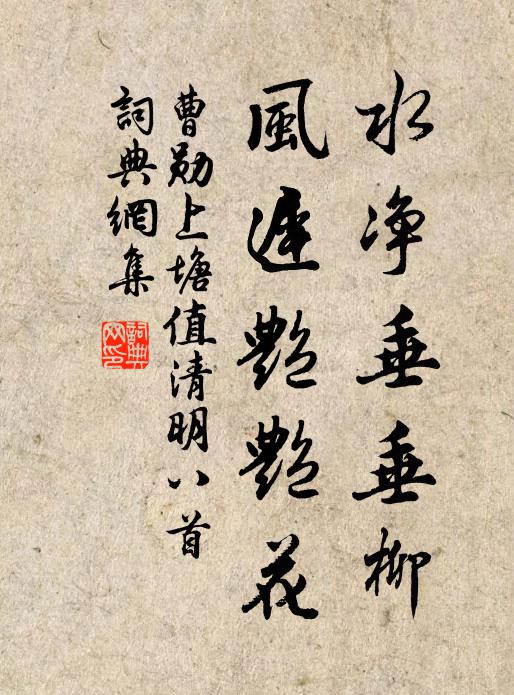 水净垂垂柳
風遲艷艷花
曹勛上塘值清明八首
詞典網集
詞典網印